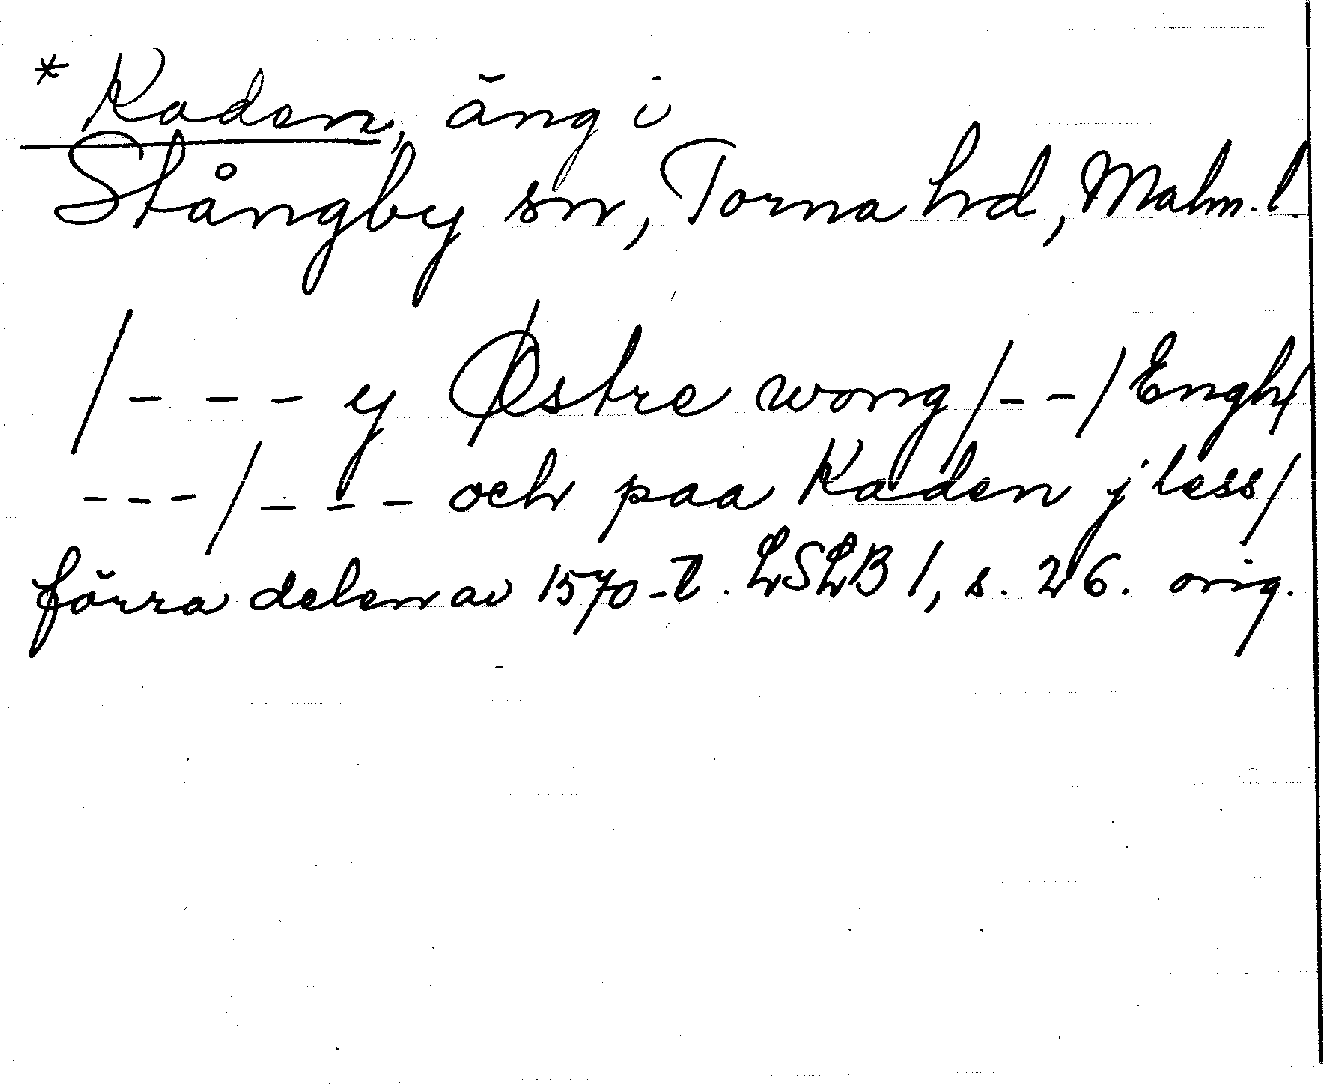 * Kaden, äng i
Stångby sn, Torna hd, Malm. l.
/--- y Østre wong/--/Engh/
---/--- och paa Kaden j less/
förra delen av 1570-t. LSLB 1, s. 26. orig.